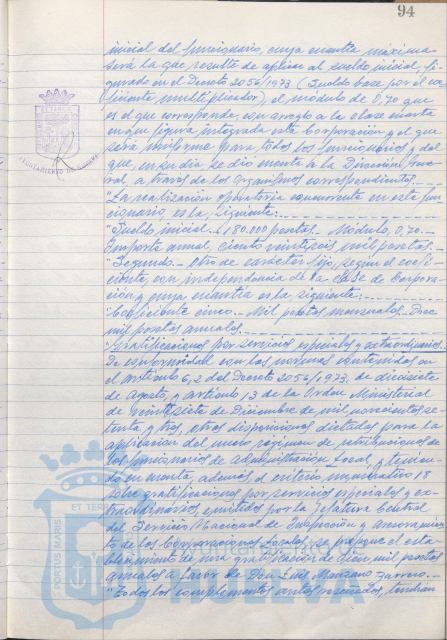 94
inicial del funcionario, cuya cuantía máxima
será la que resulte de aplicar al sueldo inicial, fi-
gurado en el Decreto 2056/1973 (Sueldo base por el co-
ficiente multiplicador), el módulo de 0,70 que
es el que corresponde con arreglo a la clase
en que figura integrada esta Corporación y el que
será uniforme para todos los funcionarios y del
que, en su día se dió cuenta a la Dirección Gene-
ral, a través de los Organismos correspondientes.
"La realización operatoria concurrente en este fun-
cionario, es la, siguiente:
"Sueldo inicial.- 180.000 pesetas.- Módulo, 0,70.-
Importe anual, ciento veintiseis mil pesetas.
"Segundo.- Otro de carácter fijo, según el coefi-
ciente, con independencia de la clase de Corpora-
ción y cuya cuantía es la siguiente:
"Coeficiente cinco.- Mil pesetas mensuales. Doce
mil pesetas anuales.
"Gratificaciones por servicios especiales y extraordinarios.
De conformidad con las normas contenidas en
el artículo 6,2 del Decreto 2056/1973, de diecisiete
de Agosto, y artículo 13 de la Orden Ministerial
de veintisiete de Diciembre de mil novecientos se-
tenta y tres, otras disposiciones dictadas para la
aplicación del nuevo régimen de retribuciones de
los funcionarios de Administración Local, y tenien-
do en cuenta, además el criterio 18
sobre gratificaciones por servicios especiales y ex-
traordinarios, emitidos por la Jefatura Central
del Servicio Nacional de Inspección y Asesoramien-
to de las Corporaciones Locales, se propone el esta-
blecimiento de una gratificación de cien mil pesetas
anuales a favor de Don Luis Manzano
"Todos los complementos antes reseñados, tendrán
AYUNTAMIENTO DE HUELVA
PORTUS MARIS ET TERRAE
Ayuntamiento de
HUELVA